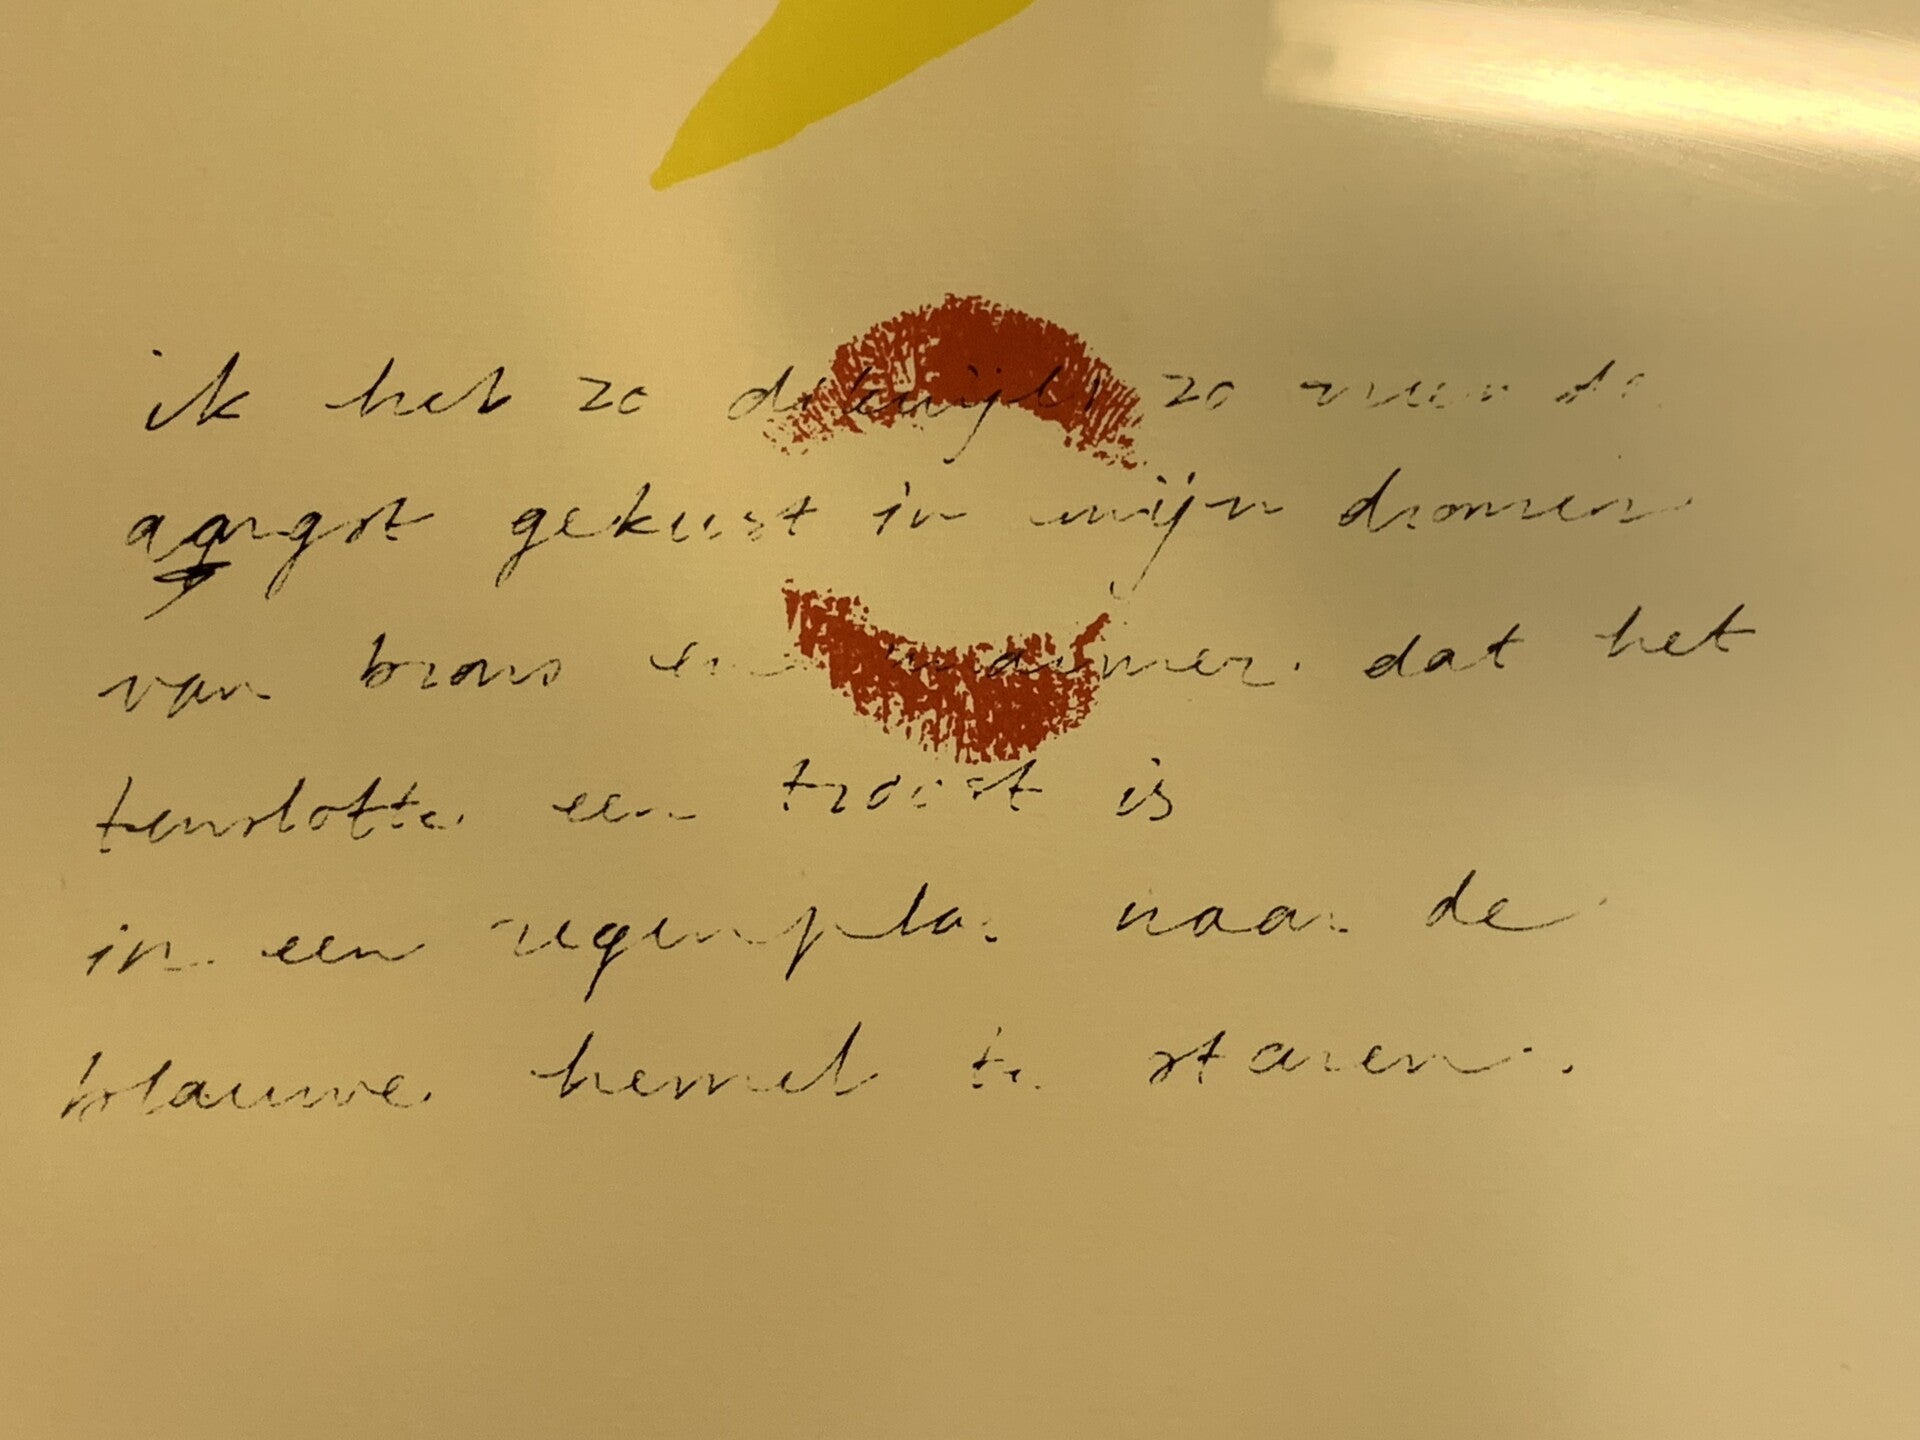 ik heb zo dikwijls zo vreemde
angst gekust in mijn dromen
van brons en marmer dat het
tenslotte een troost is
in een regenplas naar de
blauwe hemel te staren.